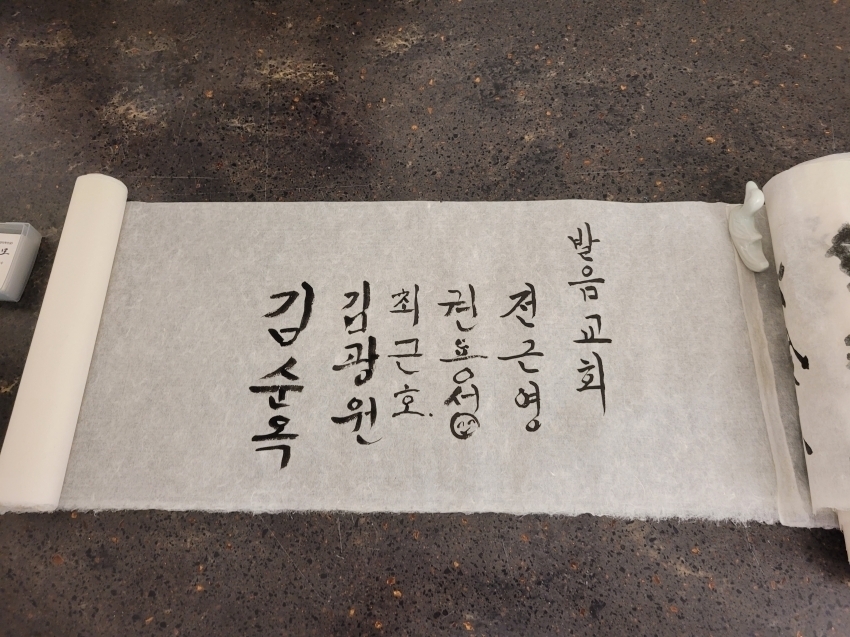 발음교회
전근영
권용성
최근호.
김광원
김순옥